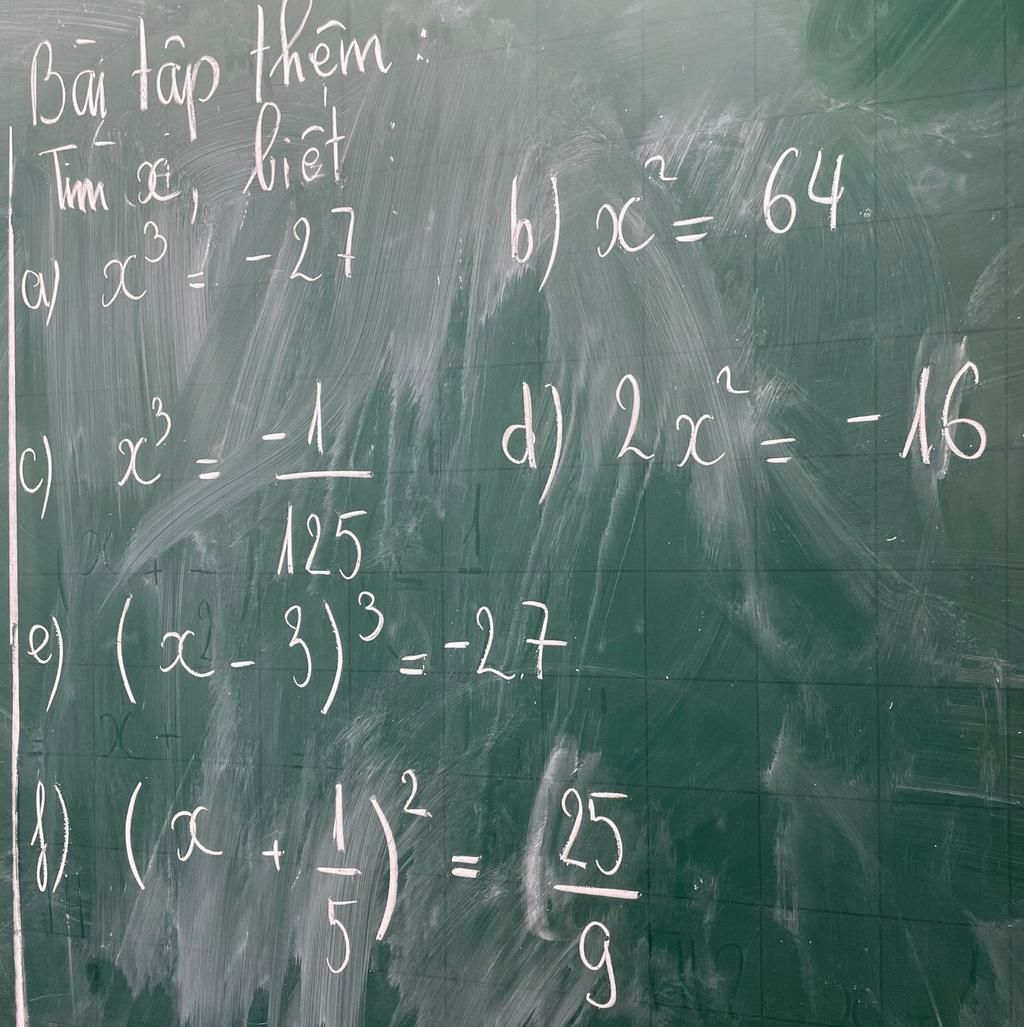 Bài tập thêm :
Tìm x, biết :
a) x³ = -27
b) x² = 64
c) x³ = -1/125
d) 2x² = -16
e) (x - 3)³ = -27
f) (x + 1/5)² = 25/9